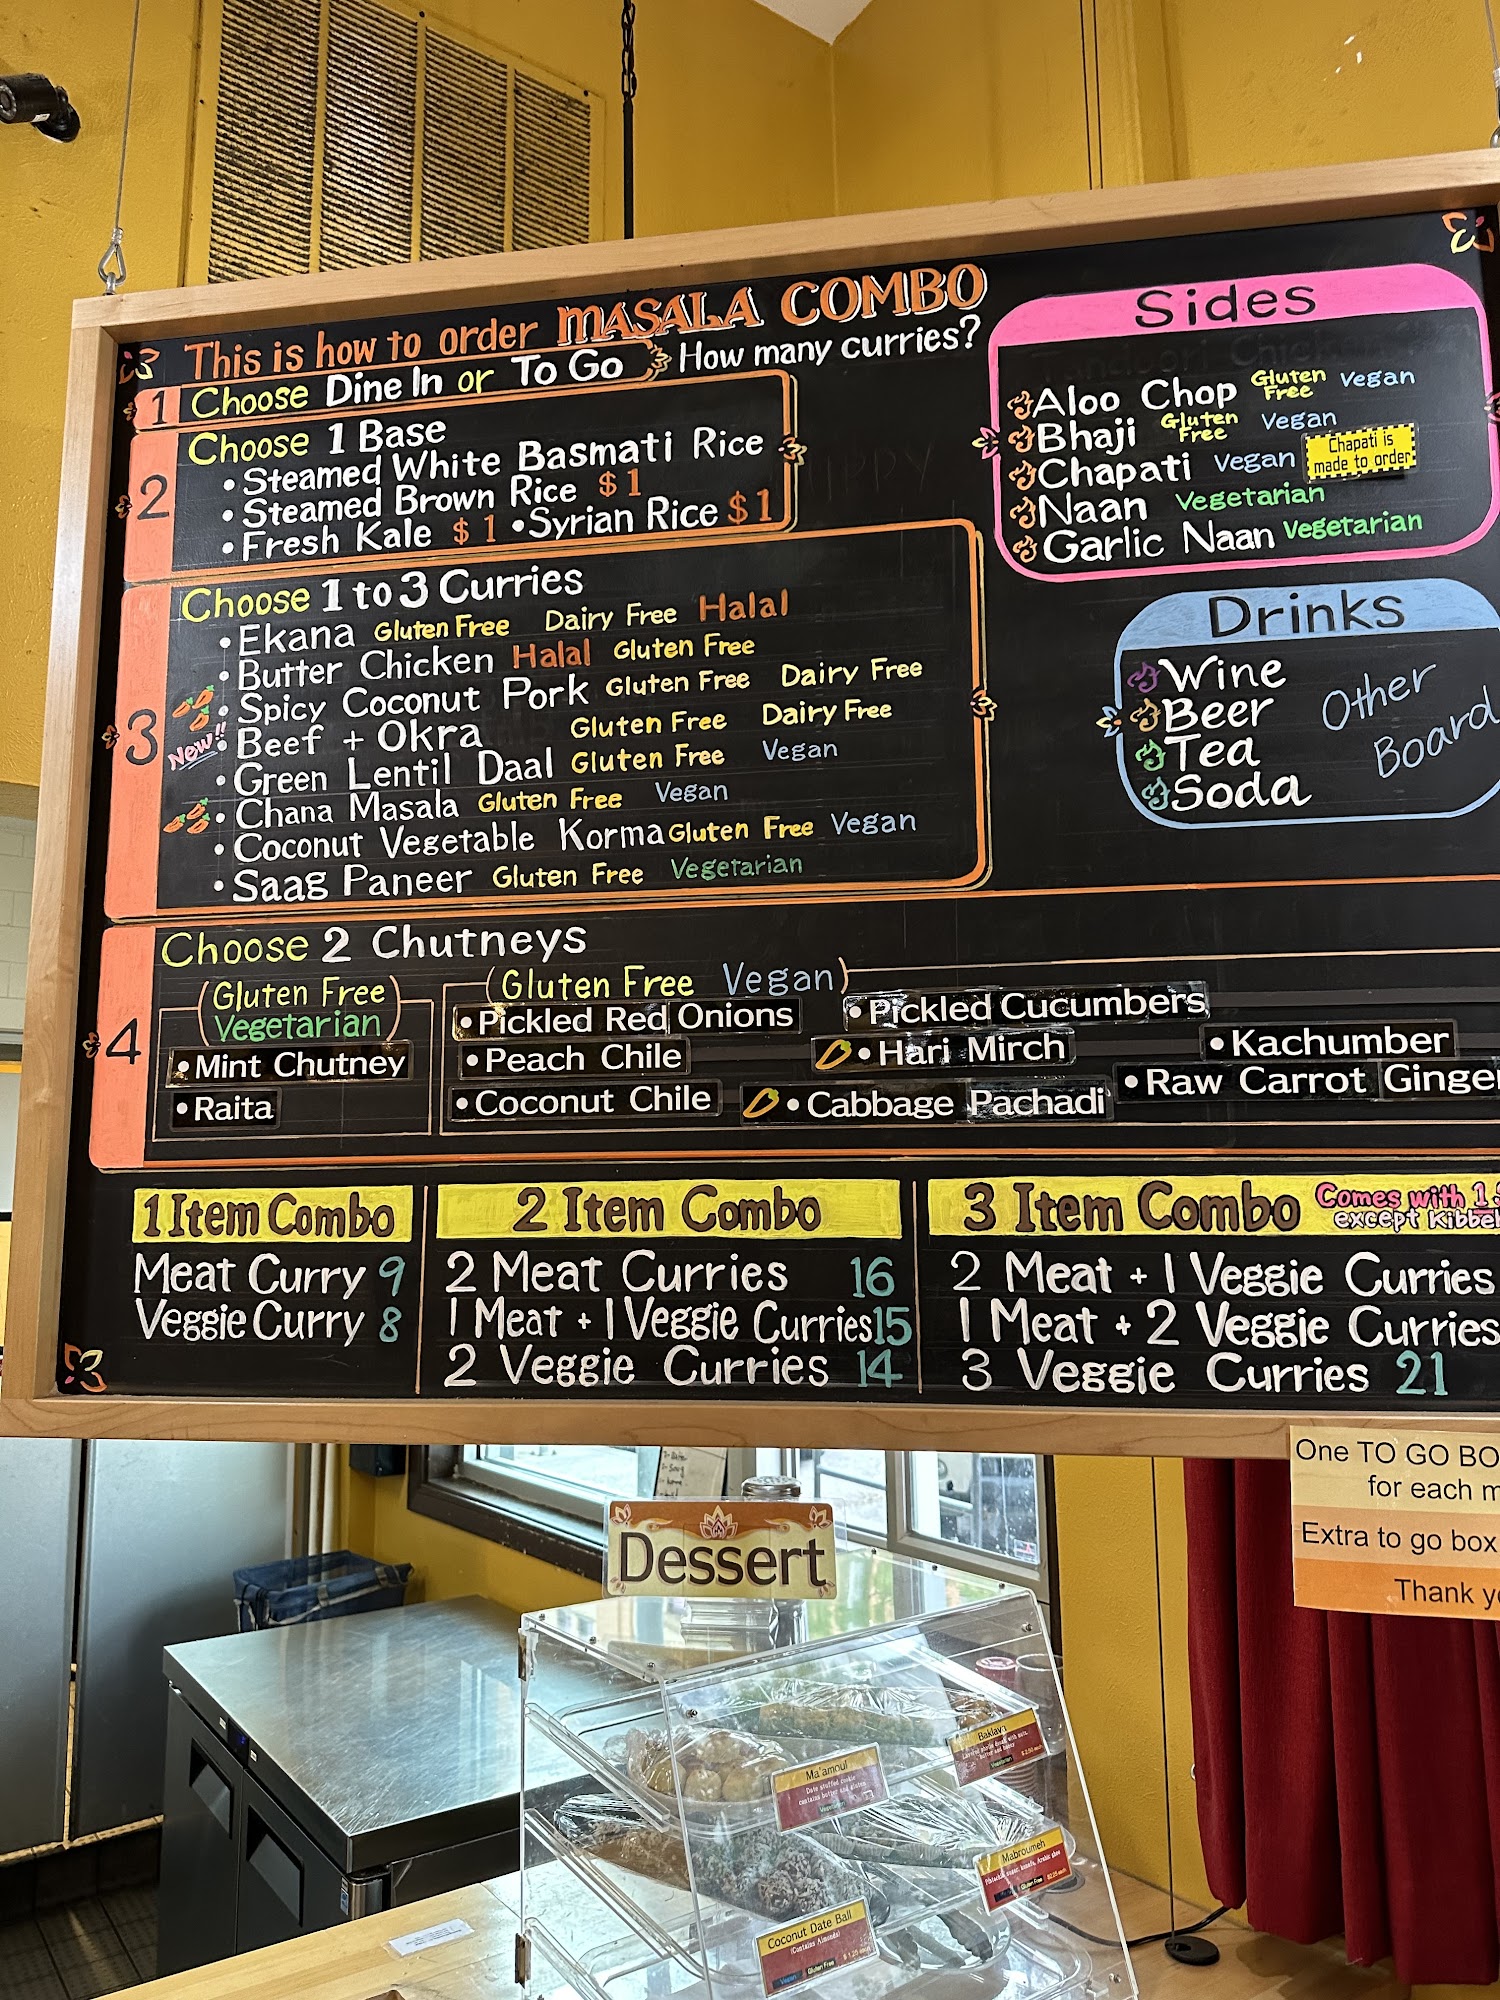 This is how to order MASALA COMBO
1 Choose Dine In or To Go
How many curries?
2 Choose 1 Base
• Steamed White Basmati Rice
• Steamed Brown Rice $1
• Fresh Kale $1 • Syrian Rice $1
3 Choose 1 to 3 Curries
• Ekana Gluten Free Dairy Free Halal
• Butter Chicken Halal Gluten Free
• Spicy Coconut Pork Gluten Free Dairy Free
New!! • Beef + Okra Gluten Free Dairy Free
• Green Lentil Daal Gluten Free Vegan
• Chana Masala Gluten Free Vegan
• Coconut Vegetable Korma Gluten Free Vegan
• Saag Paneer Gluten Free Vegetarian
4 Choose 2 Chutneys
(Gluten Free
Vegetarian)
• Mint Chutney
• Raita
(Gluten Free Vegan)
• Pickled Red Onions • Pickled Cucumbers
• Peach Chile • Hari Mirch • Kachumber
• Coconut Chile • Cabbage Pachadi • Raw Carrot Ginger
Sides
Aloo Chop Gluten Free Vegan
Bhaji Gluten Free Vegan
Chapati Vegan
Chapati is
made to order
Naan Vegetarian
Garlic Naan Vegetarian
Drinks
Wine
Beer
Tea
Soda
Other
Board
1 Item Combo
Meat Curry 9
Veggie Curry 8
2 Item Combo
2 Meat Curries 16
1 Meat + 1 Veggie Curries 15
2 Veggie Curries 14
3 Item Combo
Comes with 1
except Kibbeh
2 Meat + 1 Veggie Curries
1 Meat + 2 Veggie Curries
3 Veggie Curries 21
One TO GO BO
for each
Extra to go box
Thank
Dessert
Baklava
Ma'amoul
Date stuffed cookie
contains butter and gluten
Vegetarian
Mabroumeh
Coconut Date Ball
(Contains Almonds)
$1.25 each
Vegan Gluten Free